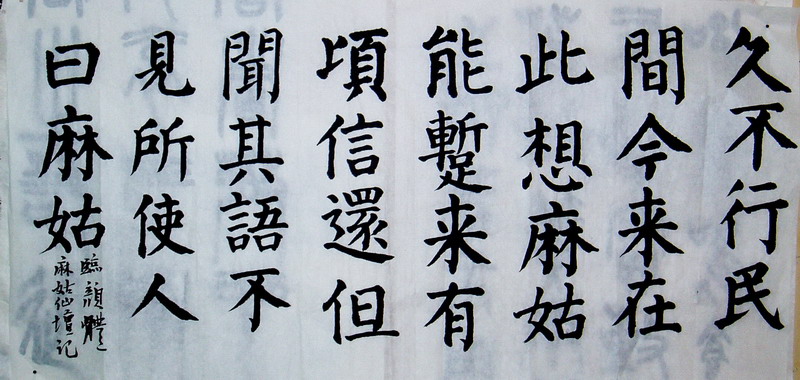 久不行民
間今来在
此想麻姑
能蹔来有
頃信還但
聞其語不
見所使人
曰麻姑
臨顔體
麻姑仙壇記